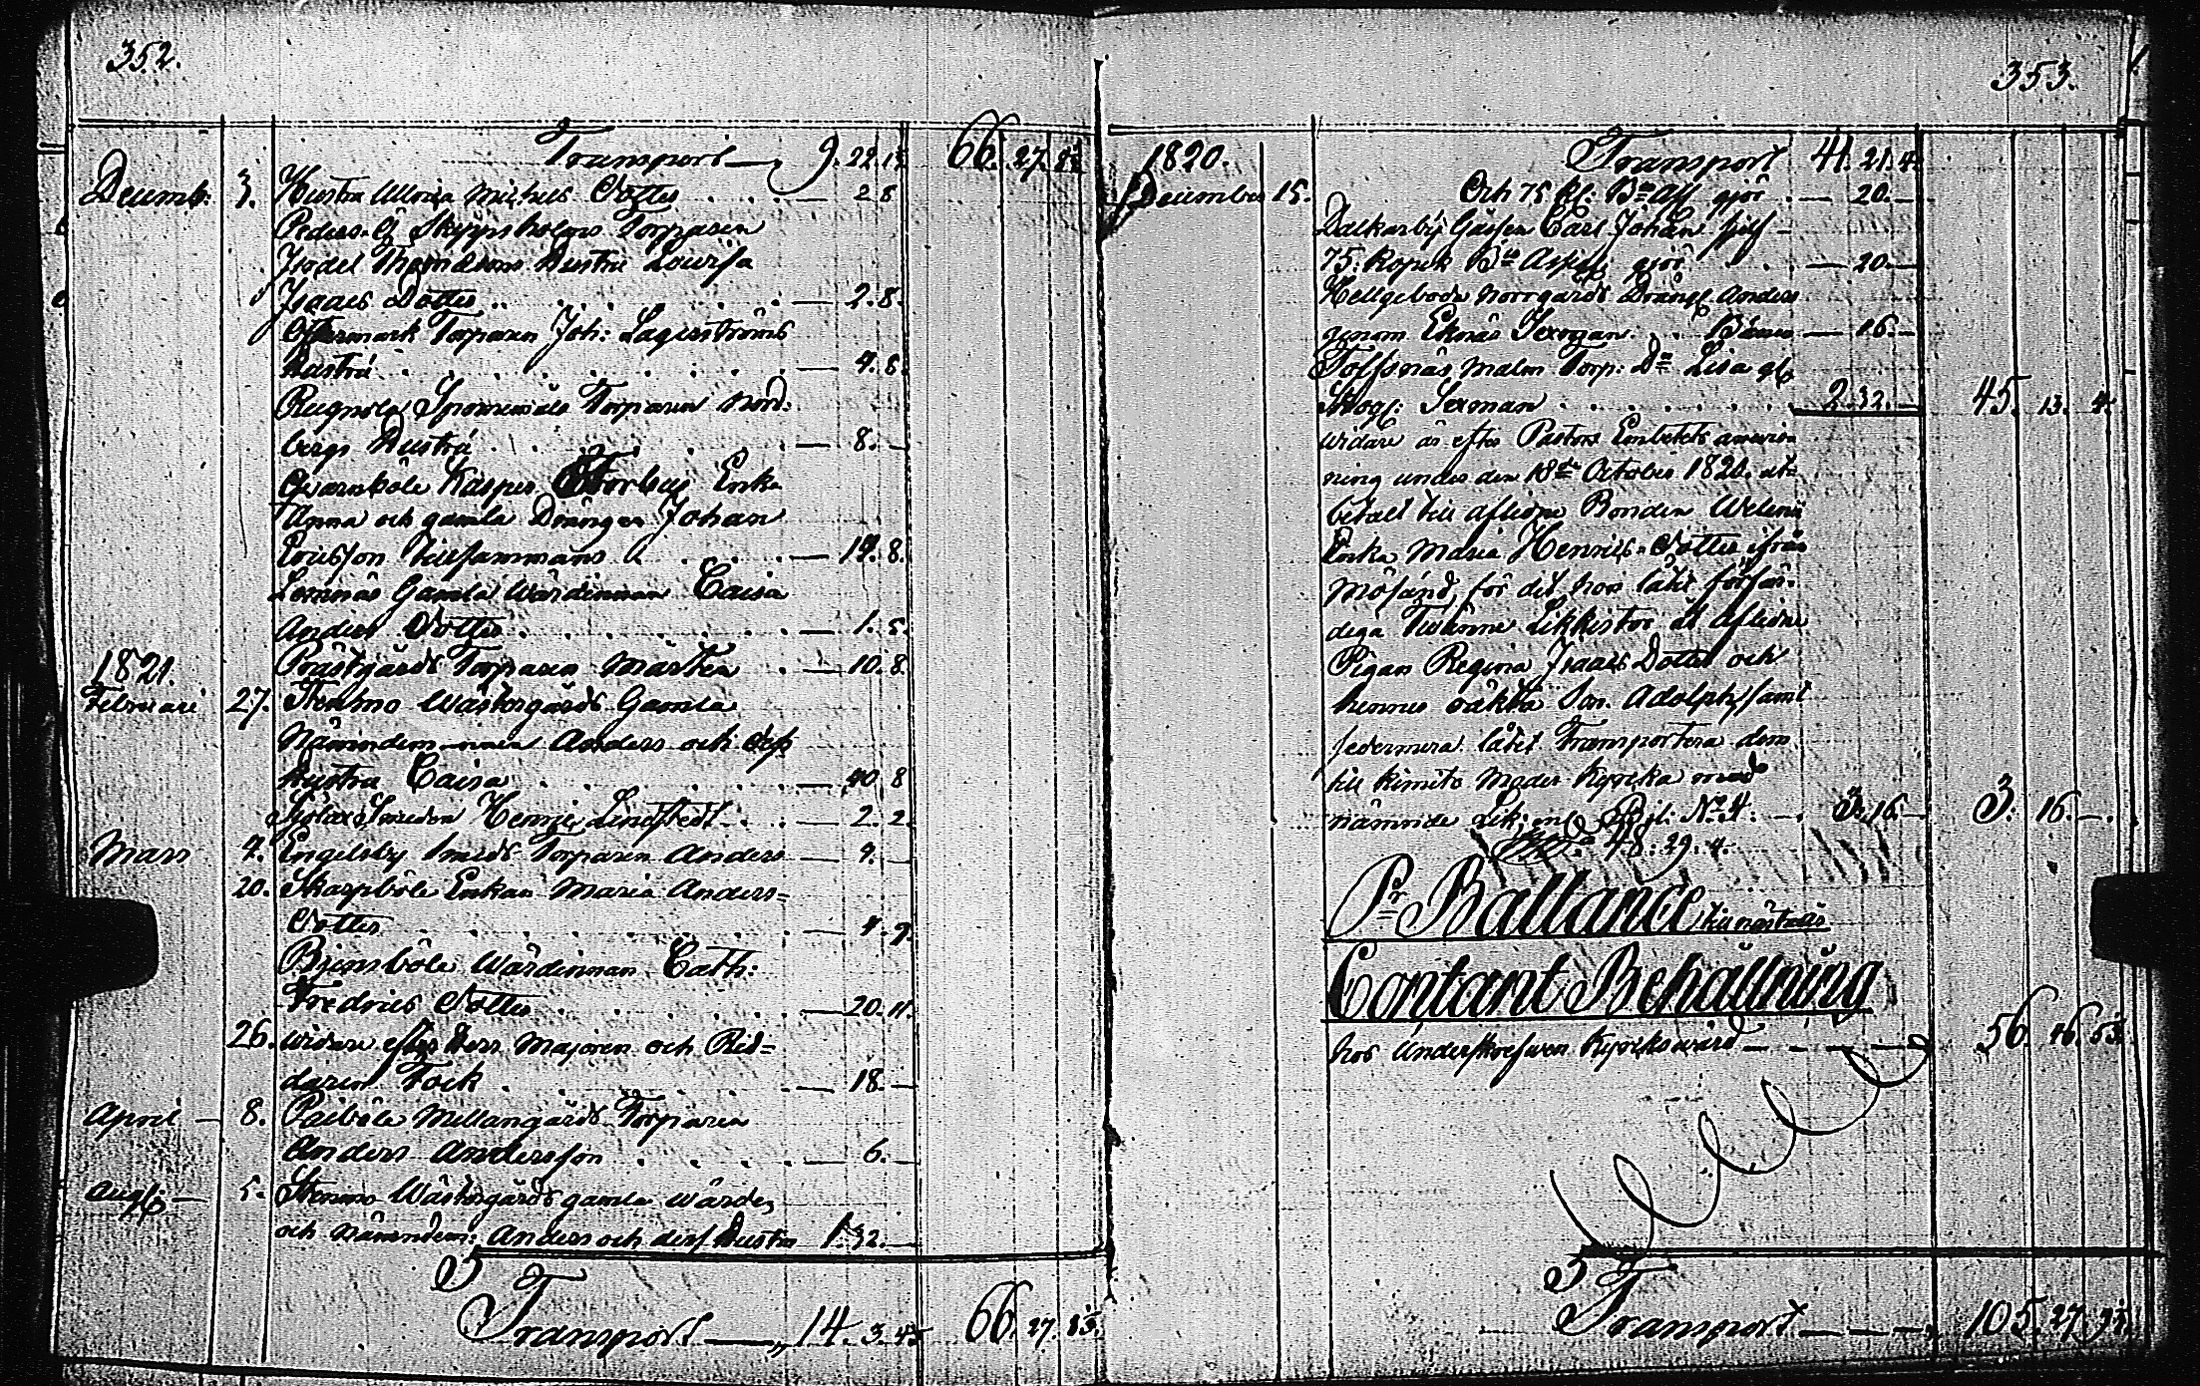 352.
Transport — 9. 22. 
66. 27. 
Decemb. 3. Hustru Maria Michels Dotter . . . — 2 8
Peders-Ö Skeppsholms Torparen
Isaacs Dotter . . . — 2. 8.
Torparen Joh: Lagerströms
Hustru . . . — 4. 8.
Torparen Nord-
bergs Hustru . . . — 8. —
Qvarnböle Kasper Enka
Anna och gamla Drängen Johan
Ericsson tillsammans . . . — 8.
Lemnäs Gamla Wärdinnan Caisa
Anders Dotter . . . — 1. 5.
Prästgårds Torparen Mårten . — 10. 8.
1821.
Februari 27. Stenmo Wästergårds Gamla
Nämndeman Anders och dess
Hustru Caisa . . . 40. 8
Henric Lindstedt . . — 2. 2.
Mars 4. Engelsby Smeds Torparen Anders — 4. —
20. Skarpböle Enkan Maria Anders-
Dotter . . . — 4. 9.
Björnböle Wärdinnan Cath:
Fredrics Dotter . . . — 20. 11.
26. widare efter Herr Majoren och Rid-
daren Fock . . . — 18. —
April — 8. Paiböle Mellangårds Torparen
Anders Andersson . . . — 6. —
Aug. — 5. Stenmo Wästergårds gamla Wärden
och Nämndem: Anders och dess Hustru 1. 32. —
Transport — 14. 3. 
66. 27. 
353.
1820. Transport 41. 21. 4.
December 15. Och 75 k: Bco Ass gör . — 20. —
Dalkarby Gossen Carl Johan
75: Kopek Bco Ass: gör . . — 20. —
Hellgeboda Norrgårds Dräng Anders
genom Eknäs Sexman . . — 16. —
Tolfsnäs Malm Torp: Lisa
Skogs: Sexman . . . 2. 32. — 45. 13. 4.
widare är efter Pastors Embetets anwis-
ning under den 18de October 1820. ut-
betalt till aflidne Bonden
Enka Maria Henrics Dotter ifrån
Mösund, för det hon låtit förfär-
diga Twänne Likkistor åt aflidne
Pigan Regina Isaacs Dotter och
hennes oäkta Son Adolph, samt
sedermera låtit Transportera dem
till Kimito Moder Kyrcka med
nämnde Lik, enl. Bil: No 4. — 3. 16. — 3. 16. —.
48. 29. 4.
Pr Ballance till nästa år
Contant Behållning
hos Underskrefwen Kyrckowärd — — — 56. 46.
Transport — — — 105. 27.